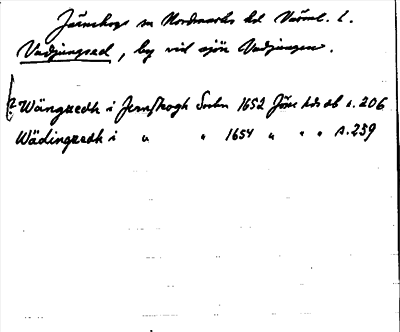 Järnskogs sn Nordmarks hd Värml. l.
Vadjungsed, by vid sjön Vadjungen.
? Wängzedh i Jernskogh Socken 1652 Jösse hds db s. 206
Wädingzedh i " " 1654 " " " s. 259